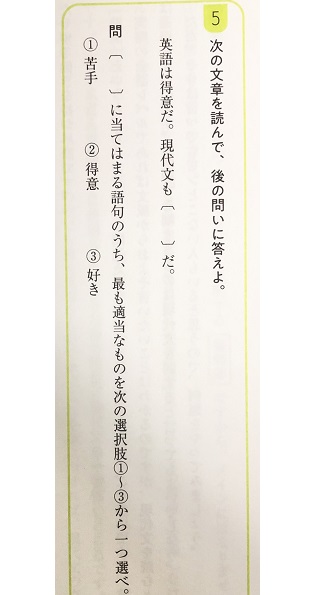 5 次の文章を読んで、後の問いに答えよ。
英語は得意だ。現代文も〔　　〕だ。
問 〔　　〕に当てはまる語句のうち、最も適当なものを次の選択肢①～③から一つ選べ。
①苦手　　②得意　　③好き